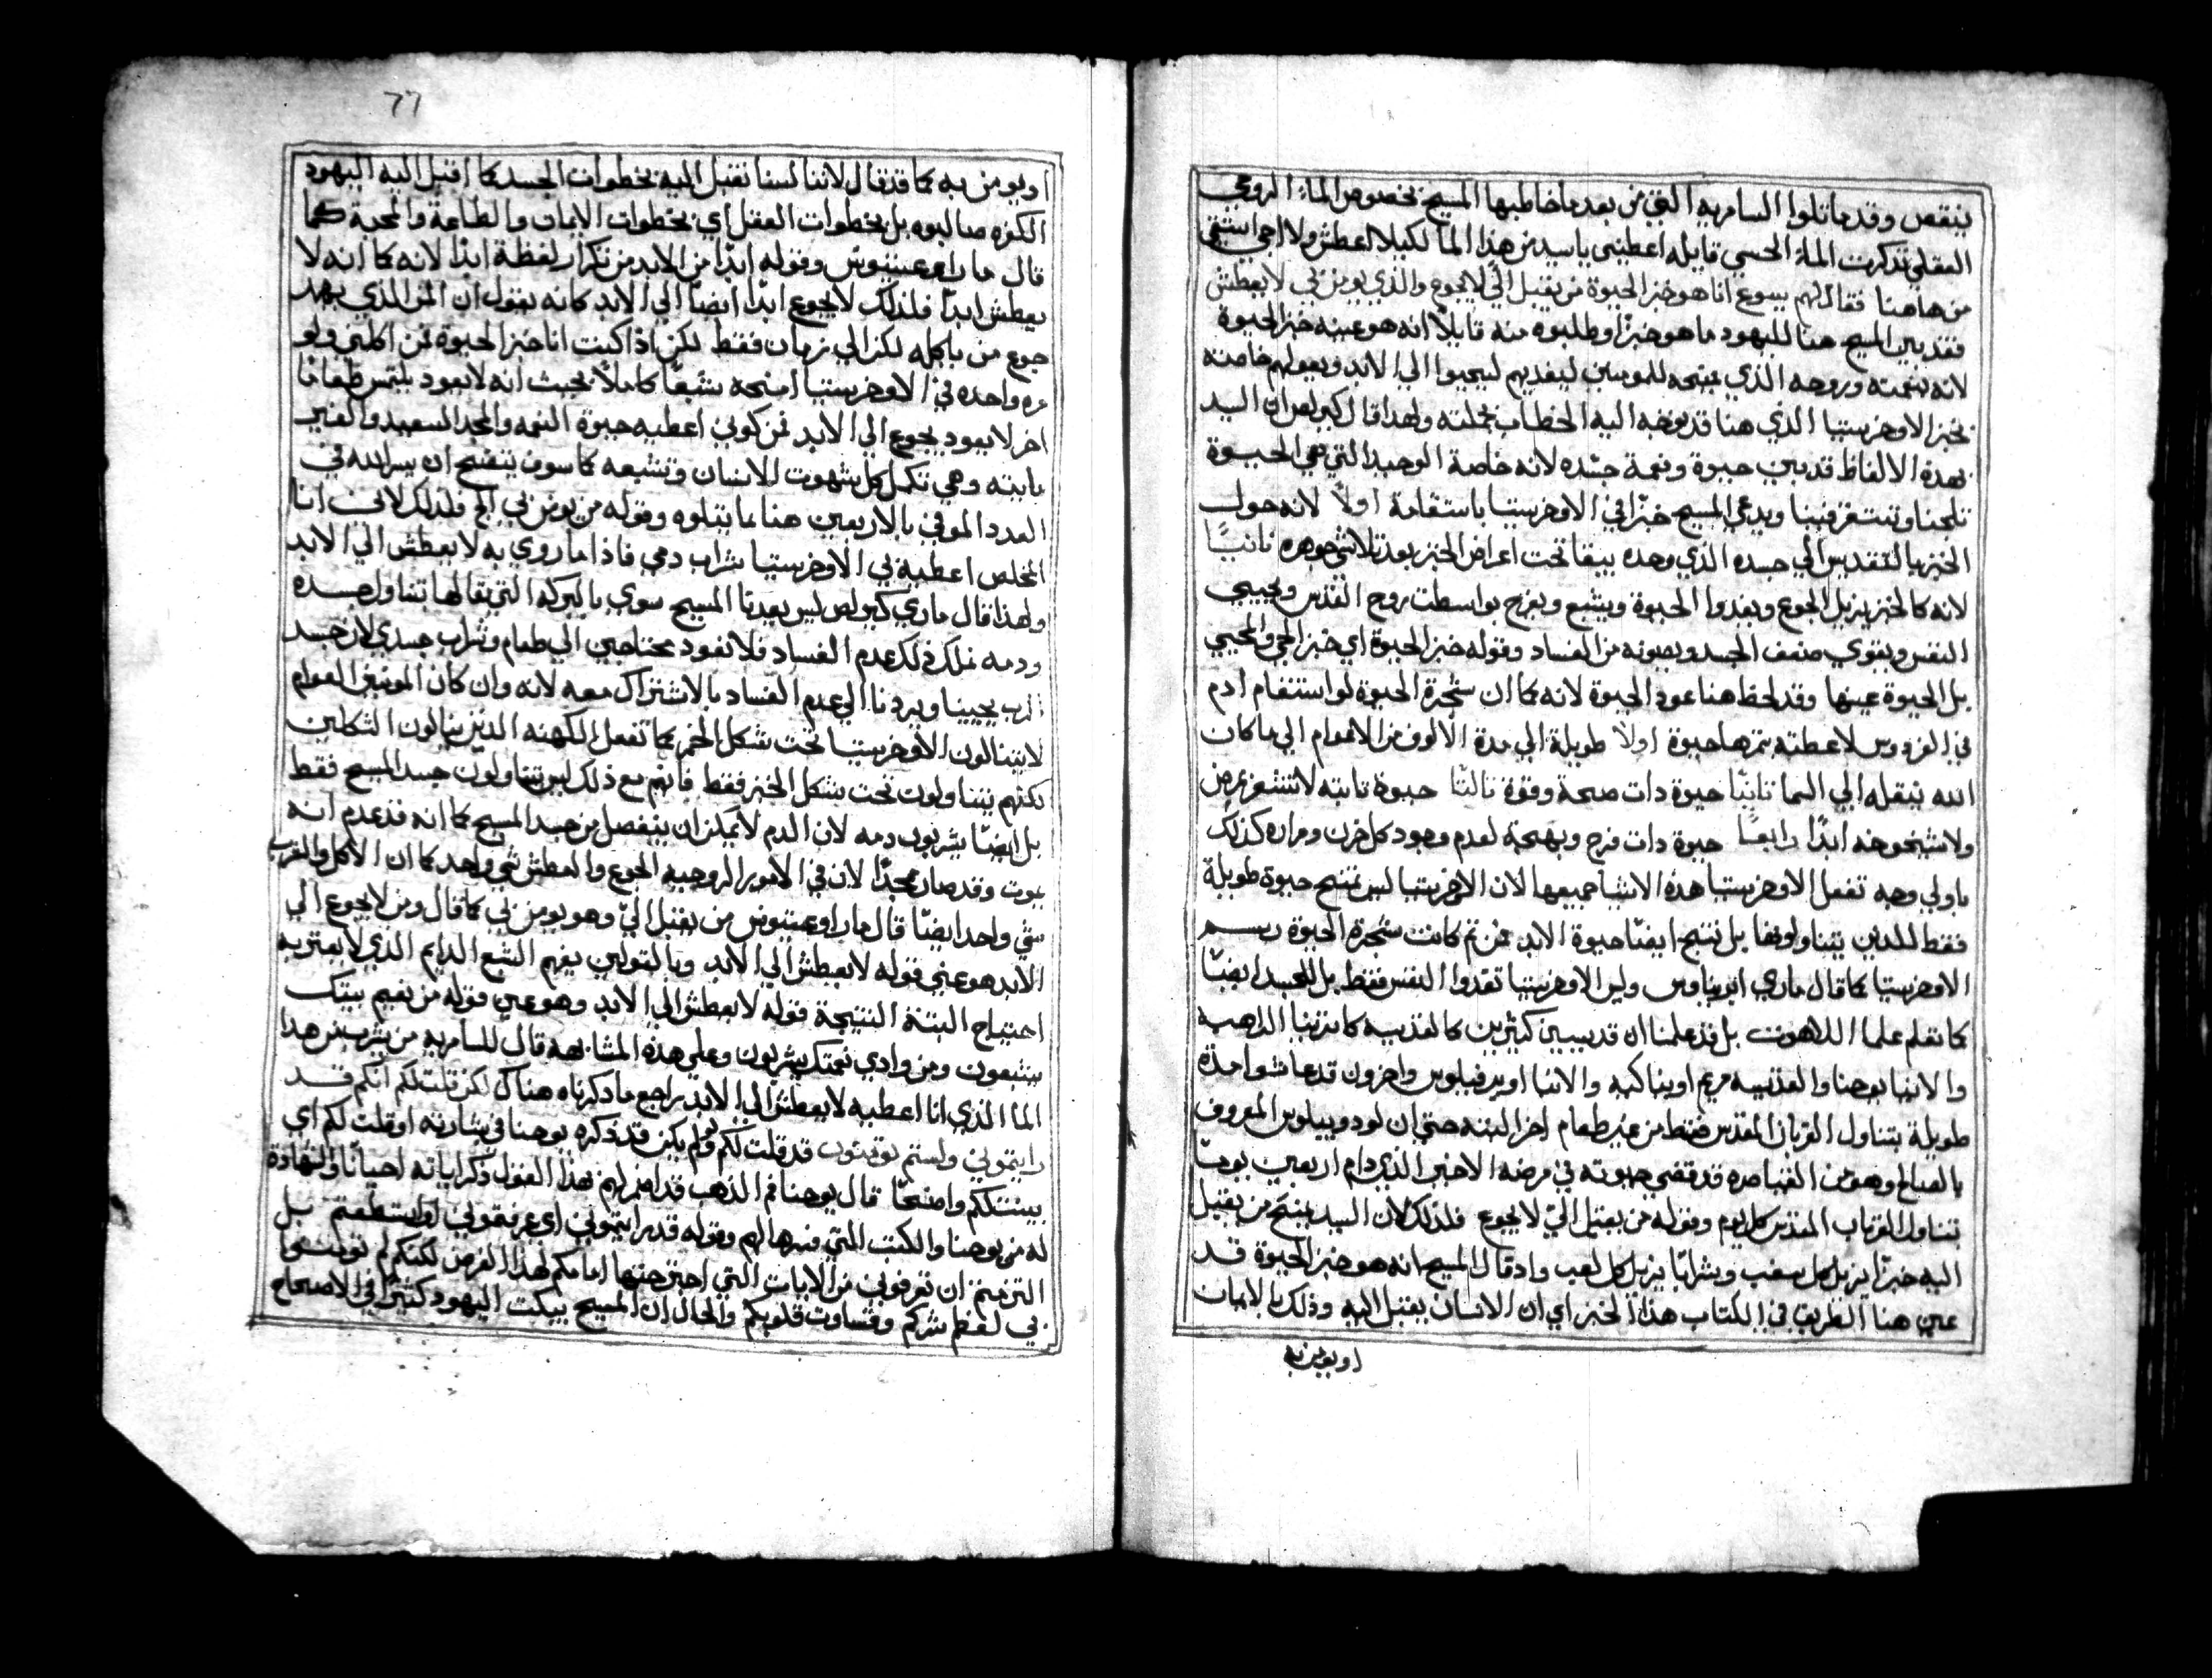 ينقص وقدماتلوا السامريه التي من بعدماخاطبها المسيح بخصوص الماء الروحي
العقلي تذكرت الماء الحسي قايله اعطيني ياسيد من هذا الما لكيلا اعطش ولا اجي استقي
من هاهنا فقال لهم يسوع انا هو خبز الحيوة من يقبل الي لا يجوع والذي يومن بي لا يعطش
فقد بين المسيح هنا لليهود ما هو خبزا وطلبوه منه قايلا انه هو عينه خبز الحيوة
لانه بنعمته وروحه الذي يمنحه للمومنين ليغديهم ليحيوا الي الابد ويعولهم خاصته
بخبز الاوخرستيا الذي هنا قد يوجه اليه الخطاب بجملته ولهدا قال كيرلص ان السيد
بهده الالفاظ قد بين حيوة ونعمة جسده لانه خاصة الوحيد التي هي الحيوة
تلجنا وتستقر فينا ويدعي المسيح خبزا في الاوخرستيا باستقامة اولا لانه حول
الخبز بالتقديس الي جسده الذي وحده يبقا تحت اعراض الخبز بعد تلاشي جوهره ثانيا
لانه كالخبز يزيل الجوع ويغدوا الحيوة ويشبع ويفرح بواسطت روح القدس ويحيي
النفس ويقوي ضعف الجسد ويصونه من الفساد وقوله خبز الحيوة اي خبز الحي والمحيي
بل الحيوة عينها وقد لحظ هنا عود الحيوة لانه كما ان شجرة الحيوة لو استقام ادم
في الفردوس لاعطته بتمرها حيوة اولا طويلة الي مدة الالوف من الاعوام الي ما كان
الله ينقله الي السما ثانيا حيوة دات صحة وقوة ثالثا حيوة ثابته لا تشعر بمرض
ولا شيخوخه ابدا رابعا حيوة دات فرح وبهجة لعدم وجود كل حزن ومراره كذلك
باولي وجه تفعل الاوخرستيا هذه الاشيا جميعها لان الاوخرستيا ليس تمنح حيوة طويلة
فقط للدين يتناولونها بل تنتج ايضا حيوة الابد فمن ثم كانت شجرة الحيوة رسم
الاوخرستيا كما قال ماري ايريناوس وليس الاوخرستيا تغدوا النفس فقط بل للجسد ايضا
كما تعلم علما اللاهوت بل قد علمنا ان قديسين كثيرين كالقديسه كاترينا الذهبيه
والانبا يوحنا والقديسه مريم اويناكيه والانبا اوبرفيلوس واخرون قد عاشوا مدة
طويلة بتناول القربان المقدس فقط من غير طعام اخر البته حتي ان لودوبيلوس المعروف
بالصالح وهو من القياصره قد قضي حيوته في مرضه الاخير الذي دام اربعين يوما
تناول القربان المقدس كل يوم وقوله من يقبل الي لا يجوع فلذلك لان السيد يمنح من يقبل
اليه خبزا يزيل كل سغب وشرابا يزيل كل لغب واد قال المسيح انه هو خبز الحيوة قد
عين هنا الطريق في اكتساب هذا الخبز اي ان الانسان يقبل اليه وذلك بالايمان
او يومن به
77
او يومن به كما قد قال لاننا لسنا نقبل اليه بخطوات الجسد كما اقبل اليه اليهود
الكفره صالبوه بل بخطوات العقل اي بخطوات الايمان والطاعة والمحبة كما
قال ماراوغستينوس وقوله ابدا من الابد من تكرار لفظة ابدا لانه كما انه لا
يعطش ابدا فلذلك لا يجوع ابدا ايضا الي الابد كانه يقول ان المن الذي يهد
جوع من ياكله لكن الي زمان فقط لكن اذا كنت انا خبز الحيوة فمن اكلني ولو
مره واحده في الاوخرستيا امنحه شبعا كاملا بحيث انه لا يعود يلتمس طعاما
اخر لا يعود يجوع الي الابد فمن كوني اعطيه حيوة النعمه والمجد السعيد والغني
باينه وهي تكمل كل شهوت الانسان وتشبعه كما سوف يتضح ان يسر الله في
العدد الموفي بالاربعين هنا بما يتلوه وقوله من يومن بي الخ فلذلك لانني انا
المخلص اعطيه بي الاوخرستيا شراب دمي فاذا ما روي به لا يعطش الي الابد
ولهذا قال ماري كيرلص ليس يعدنا المسيح سوي بالبركه التي ننالها بتناول جسده
ودمه نملك ذلك عدم الفساد فلا نعود محتاجين الي طعام وشراب جسدي لان جسد
الرب يحيينا ويردنا الي عدم الفساد بالاشتراك معه لانه وان كان المومنين العوام
لا يتنالون الاوخرستيا تحت شكل الخمر كما تفعل الكهنه الدين ينالون الشكلين
لكنهم يتناولون تحت شكل الخبز فقط فانهم مع ذلك ليس يتناولون جسد المسيح فقط
بل ايضا يشربون دمه لان الدم لا يمكن ان ينفصل من جسد المسيح كما انه قد عدم انه
يموت وقد صار ممجدا لان في الامور الروحيه الجوع والعطش شي واحد كما ان الاكل والشرب
شي واحد ايضا قال ماراوغستينوس من يقبل الي وهو يومن بي كما قال ومن لا يجوع الي
الابد هو عني قوله لا يعطش الي الابد وبالقولين يفهم الشبع الدايم الذي لا يعتريه
احتياج البتة النتيجة قوله لا يعطش الي الابد وهو عين قوله من نعيم بيتك
يشبعون ومن وادي نعمتك يشربون وعلي هذه المشابهه قال للسامريه من يشرب من هدا
الما الذي انا اعطيه لا يعطش الي الابد راجع ما دكرناه هناك لكن قلت لكم انكم قد
رايتموني ولستم تومنون قد قلت لكم ولو لم يكن قد ذكره يوحنا في بشارته او قلت لكم اي
بينت لكم واضحا قال يوحنا فم الذهب قد اضمر لهم بهذا القول ذكر اياته احيانا والشهادة
له من يوحنا والكتب التي فسرها لهم وقوله قد رايتموني اي عرفتموني او استطعتم بل
التزمتم ان تعرفوني من الايات التي اجترحتها امامكم لهذا الغرض لكنكم لم تومنوا
بي لعظم شركم وقساوت قلوبكم والحال ان المسيح يبكت اليهود كثيرا في الاصحاح